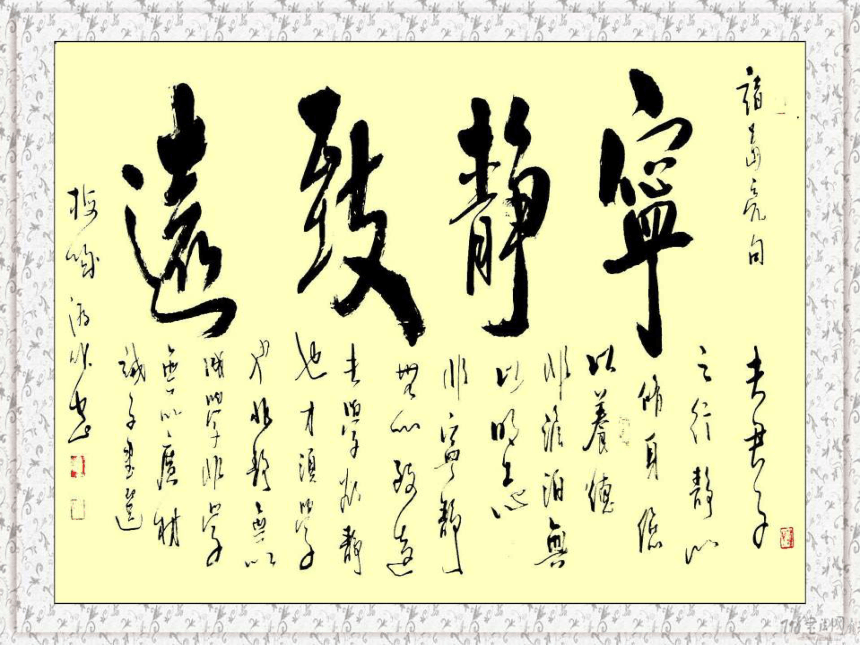 諸葛亮句
寧靜致遠
夫君子
之行靜以
修身儉
以養德
非澹泊無
以明志
非寧靜
無以致遠
夫學欲靜
也才須學
也非志無以
成學非學
無以廣材
誡子書
书法网